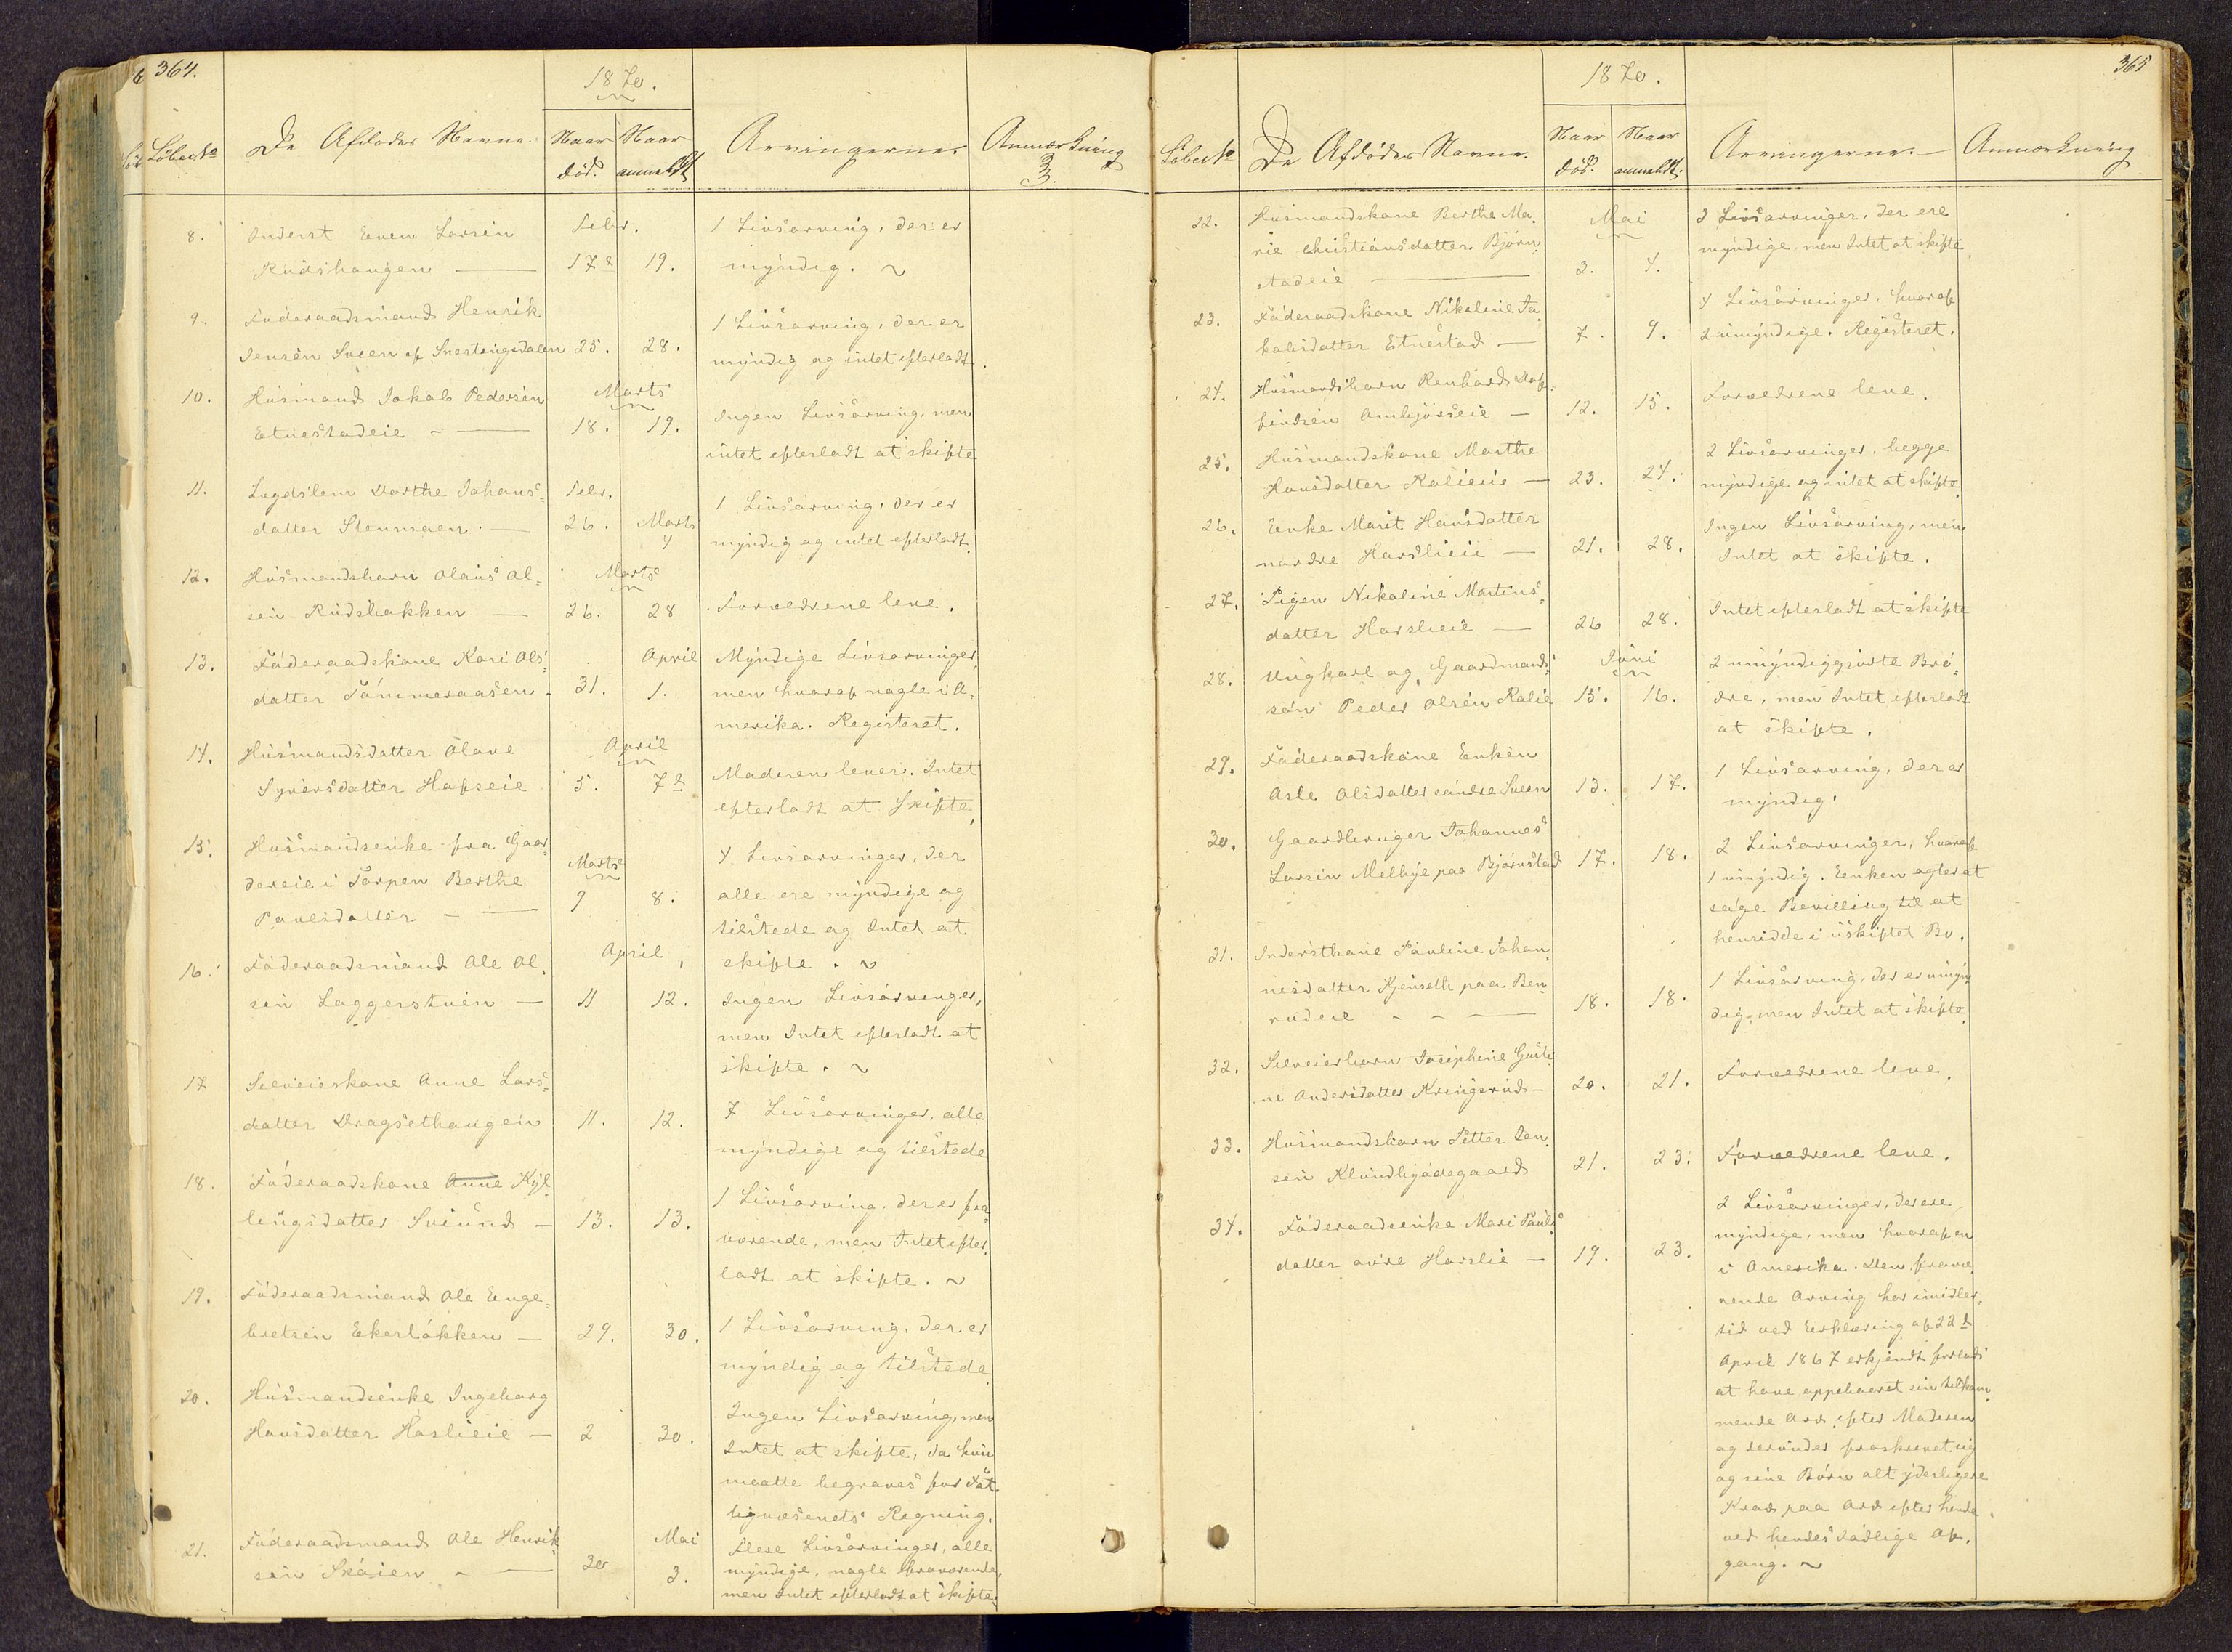 364.
1870.
LöbeNo
De Afdødes Navne.
Naar død.
Naar anmeldt
Arvingerne.
Anmærkning
8.
Inderst Even Larsen
Rudshaugen
Febr.
17de
19.
1 Livsarving, der er
myndig.
9.
Föderaadsmand Henrik
Jensen Sveen af Snertingdalen
25.
28.
1 Livsarving, der er
myndig og intet efterladt.
10.
Husmand Jakob Pedersen
Etnestadeie
Marts
18.
19.
Ingen Livsarving, men
intet efterladt at skifte
11.
Lægdslem Dorthe Johans=
datter Stenmoen.
Febr.
26.
Marts
4
1 Livsarving, der er
myndig og intet efterladt.
12.
Husmandsbarn Olaus Ol=
sen Rudsbakken
Marts
26.
28
Forældrene leve.
13.
Föderaadskone Kari Ols=
datter Tömmeraasen.
31.
April
1.
Myndige Livsarvinger,
men hvoraf nogle i A-
merika. Registeret.
14.
Husmandsdatter Olave
Syversdatter Hofseie
April
5.
7de
Moderen lever. Intet
efterladt at skifte.
15.
Husmandsenke fra Gaar=
dereie i Torpen Berthe
Paulsdatter
Marts
9
8.
4 Livsarvinger, der
alle ere myndige og
tilstede og Intet at
skifte.
16.
Föderaadsmand Ole Ol=
sen Laggerstuen
April
11
12.
Ingen Livsarvinger,
men Intet efterladt at
skifte.
17
Selveierkone Anne Lars=
datter Dragsethaugen
11.
12.
7 Livsarvinger, alle
myndige og tilstede
18.
Föderaadskone Anne Kjl
lingsdatter Sviund
13.
13.
1 Livsarving, der er fra=
værende, men Intet efter=
ladt at skifte.
19.
Föderaadsmand Ole Enge=
bretsen Ekerlökken
29.
30.
1 Livsarving, der er
myndig og tilstede
20.
Husmandsenke Ingeborg
Hansdatter Haslieie
2
30.
Ingen Livsarving, men
Intet at skifte, da hun
maatte begraves for Fat=
tigvæsenets Regning.
21.
Föderaadsmand Ole Henrik=
sen Skoien
30
Mai
3.
Flere Livsarvinger, alle
myndige, nogle fraværende,
men Intet efterladt at skifte.
365
1870.
LöbeNo
De Afdødes Navne.
Naar død.
Naar anmeldt.
Arvingerne.
Anmærkning
22.
Husmandskone Berthe Ma=
rie Christiansdatter Bjørn=
stadeie
Mai
3.
4.
3 Livsarvinger, der ere
myndige, men Intet at skifte.
23.
Föderaadskone Nikoline Ja=
kobsdatter Etnestad
7.
9.
4 Livsarvinger, hvoraf
2 umyndige. Registeret.
24.
Husmandsbarn Renhard Tof=
findsen Amlijörseie
12.
15.
Forældrene leve.
25.
Husmandskone Marthe
Hansdatter Kolieie
23.
24.
2 Livsarvinger, begge
myndige og intet at skifte.
26.
Enke Marit Hansdatter
nordre Harslieie
21.
28.
Ingen Livsarving, men
Intet at skifte.
27.
Pigen Nikoline Martins=
datter Harslieie
26
28.
Intet efterladt at skifte
28.
Ungkarl og Gaardmands=
sön Peder Olsen Kolie
Juni
15.
16.
2 umyndiggjorte Brö=
dre, men Intet efterladt
at skifte.
29.
Föderaadskone Enken
Osle Olsdatter söndre Sveen
13.
17.
1 Livsarving, der er
myndig.
30.
Gaardbruger Johannes
Larsen Melbye paa Bjørnstad
17.
18.
2 Livsarvinger, hvoraf
1 umyndig. Enken agter at
søge Bevilling til at
hensidde i uskiftet Bo.
31.
Inderstkone Pauline Johan=
nesdatter Kjenseth paa Ben=
rudeie
18.
18.
1 Livsarving, der er umyn=
dig, men Intet at skifte.
32.
Selveierbarn Josephine Gusta=
ne Andersdatter Kringsrud
20.
21.
Forældrene leve.
33.
Husmandsbarn Petter Jen=
sen Klundbyödegaard
21.
23.
Forældrene leve.
34.
Föderaadsenke Mari Pauls=
datter övre Harslie
19.
23.
2 Livsarvinger, der ere
myndige, men hvoraf en
i Amerika. Den fravæ=
rende Arving har imidler=
tid ved Erklæring af 22de
April 1867 erkjendt forlods
at have oppebaaret sin tilkom=
mende Arv efter Moderen
og desuden fraskrevet sig
og sine Börn alt yderligere
Krav paa Arv efter hende
ved hendes dödlige Af=
gang.